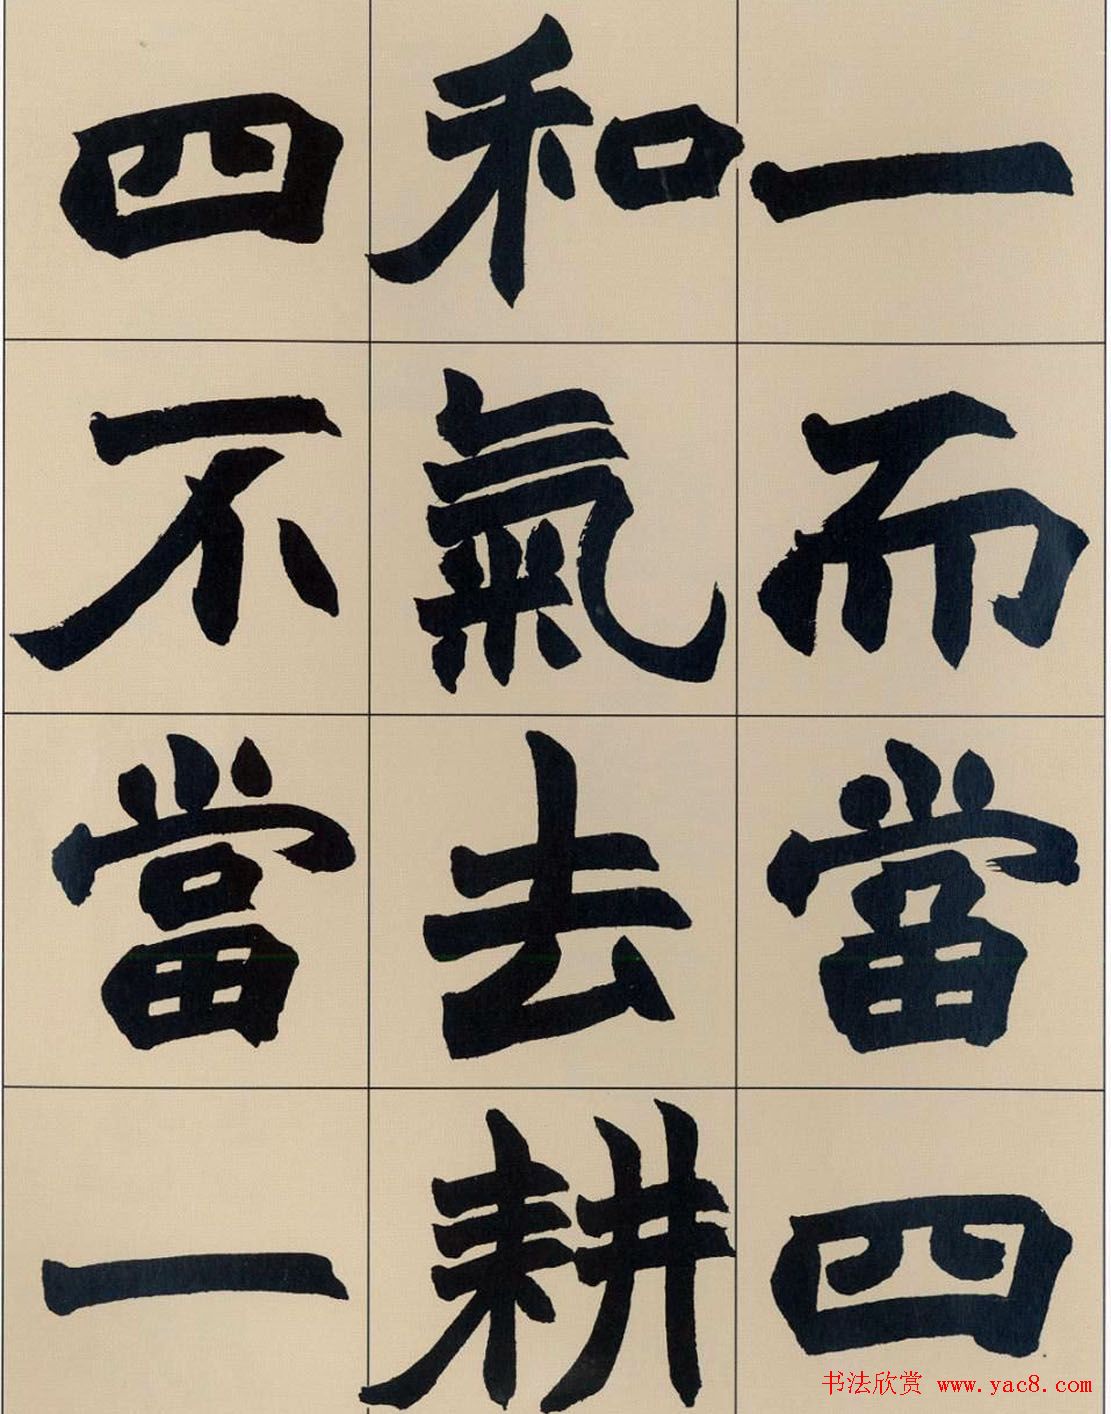 一而當四
和氣去耕
四不當一
书法欣赏 www.yac8.com